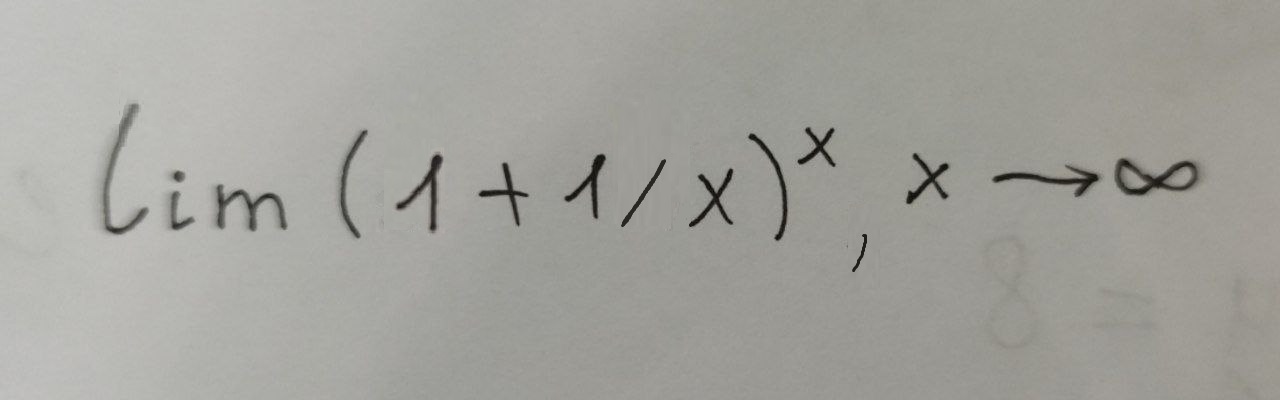 lim (1 + 1/x)^x, x → ∞